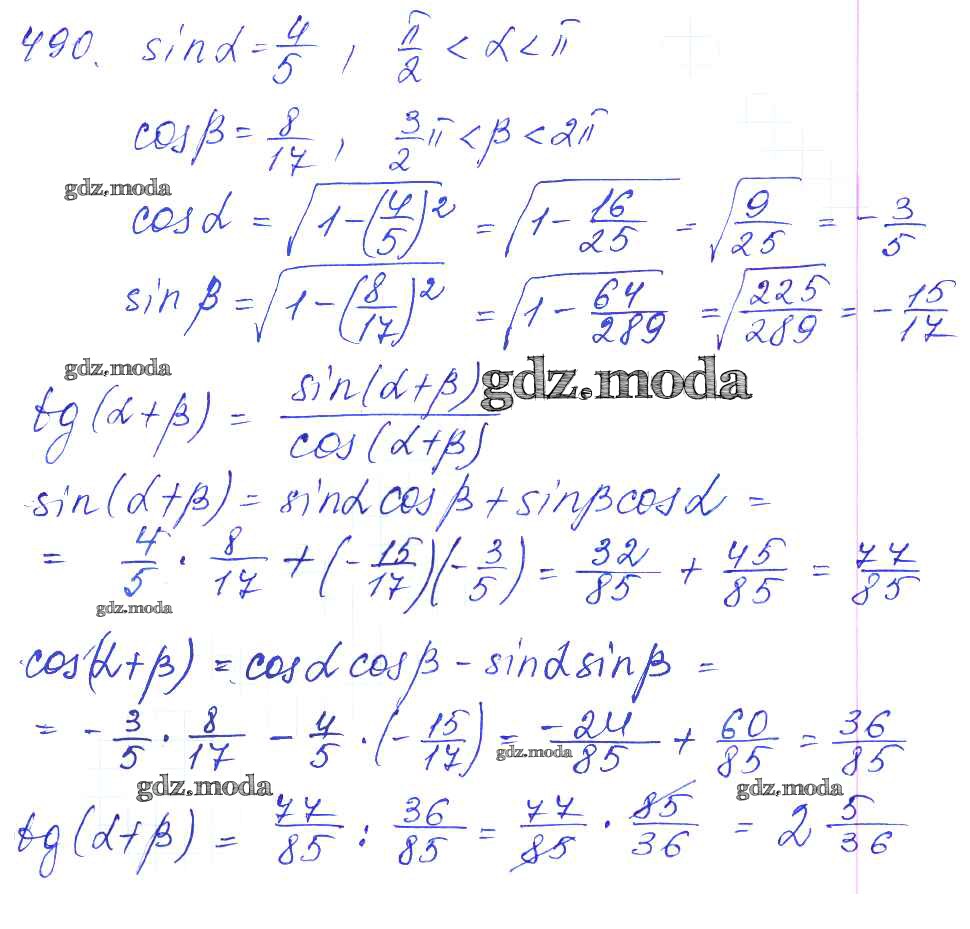 490. sin α = 4/5 , π/2 < α < π
cos β = 8/17 , 3/2 π < β < 2π
gdz.moda
cos α = √(1-(4/5)²) = √(1 - 16/25) = √(9/25) = - 3/5
sin β = √(1-(8/17)²) = √(1 - 64/289) = √(225/289) = - 15/17
gdz.moda
gdz.moda
tg(α+β) = sin(α+β)/cos(α+β)
sin(α+β) = sinα cosβ + sinβ cosα =
= 4/5 · 8/17 + (- 15/17)(- 3/5) = 32/85 + 45/85 = 77/85
gdz.moda
cos(α+β) = cosα cosβ - sinα sinβ =
= - 3/5 · 8/17 - 4/5 · (- 15/17) = -24/85 + 60/85 = 36/85
gdz.moda
gdz.moda
gdz.moda
tg(α+β) = 77/85 : 36/85 = 77/85 · 85/36 = 2 5/36